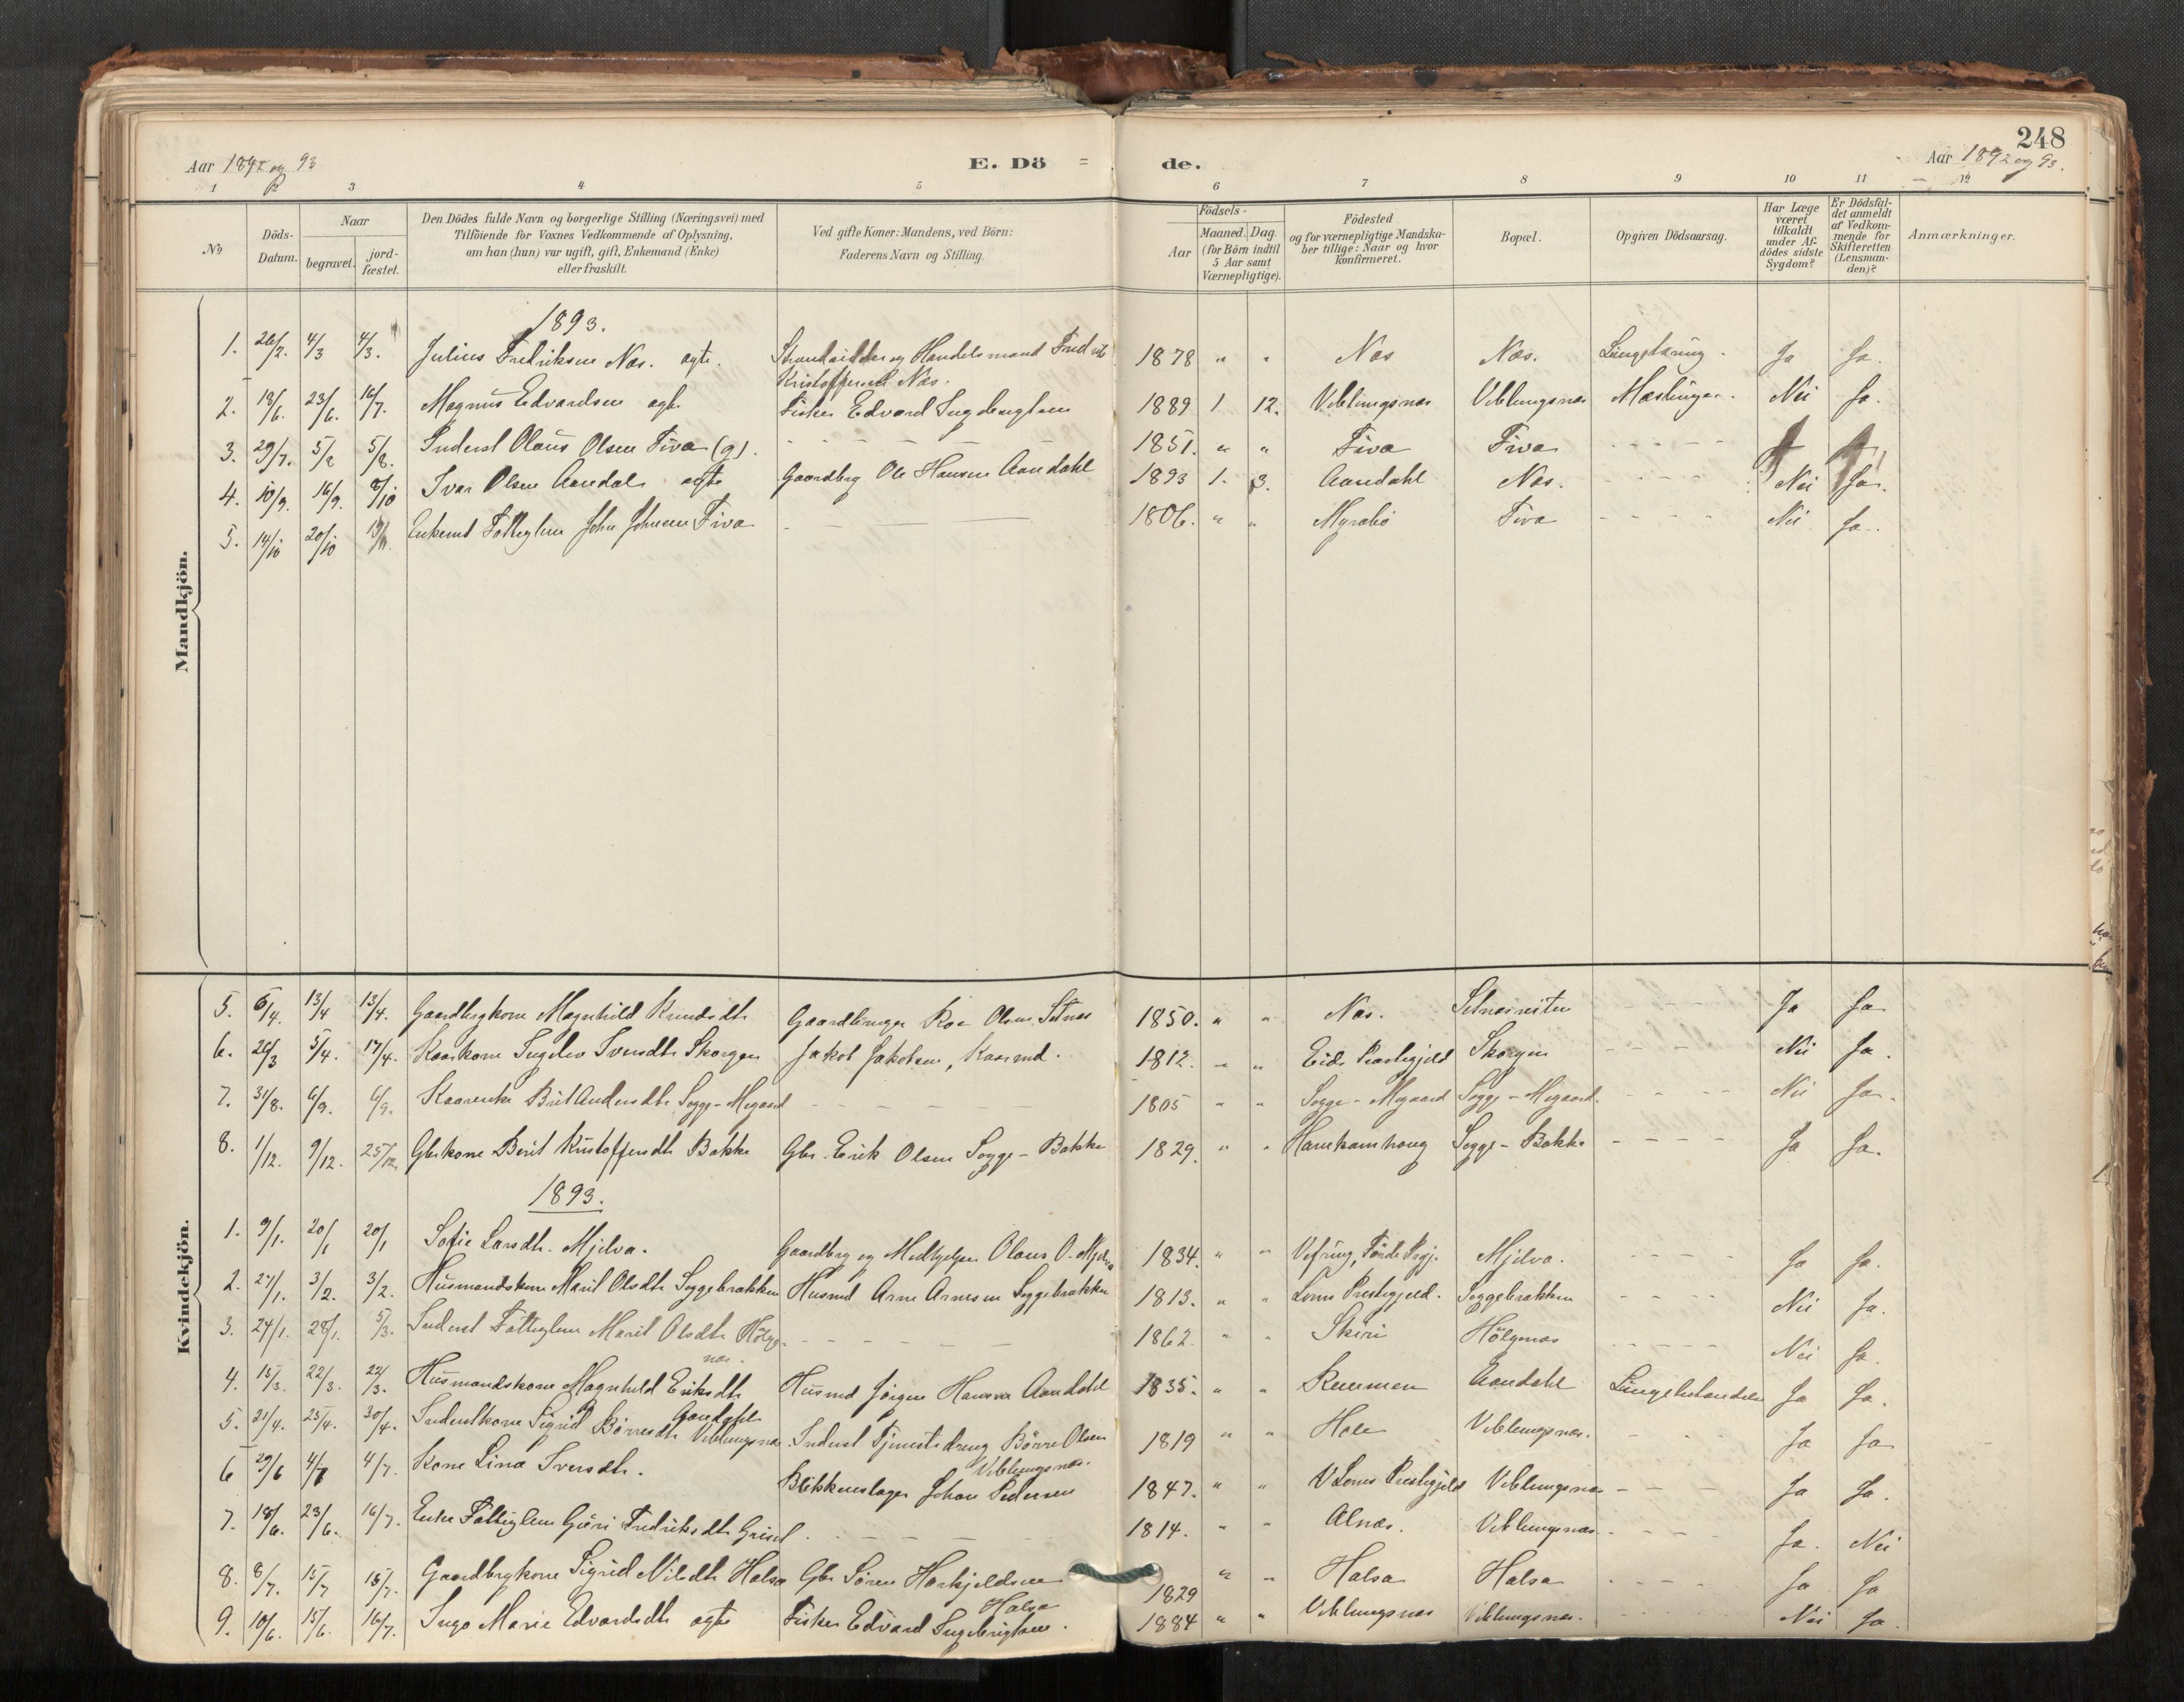 248
Aar 1892 og 93
E. Dö = de.
Aar 1892 og 93.
1 2 3 4 5 6 7 8 9 10 11 12
No
Döds-Datum.
Naar
begravet.
jord-fæstet.
Den Dödes fulde Navn og borgerlige Stilling (Næringsvei) med
Tilföiende for Voxnes Vedkommende af Oplysning,
om han (hun) var ugift, gift, Enkemand (Enke)
eller fraskilt.
Ved gifte Koner: Mandens, ved Börn:
Faderens Navn og Stilling.
Födsels-
Aar
Maaned. Dag.
(for Börn indtil
5 Aar samt
Værnepligtige).
Födested
og for værnepligtige Mandska-
ber tillige: Naar og hvor
konfirmeret.
Bopæl.
Opgiven Dödsaarsag.
Har Læge
været
tilkaldt
under Af-
dödes sidste
Sygdom?
Er Dödsfal-
det anmeldt
af Vedkom-
mende for
Skifteretten
(Lensman-
den)?
Anmærkninger.
Mandkjön.
1893.
1. 26/2. 4/3 4/3. Julius Fredriksen Næs. ægte. Strandsidder og Handelsmand Fredrik 1878 " " Næs Næs. Ja Ja.
Kristoffersen Næs.
2. 18/6. 23/6. 16/7. Magnus Edvardsen ægte Fisker Edvard Ingebrigtsen 1889 1 12. Veblungsnæs Veblungsnæs Mæslinger. Nei Ja.
3. 29/7. 5/8 5/8. Inderst Olaus Olsen Fiva (g). - - - - - 1851. " " Fiva Fiva - - - - -
4. 10/9. 16/9. 8/10 Ivar Olsen Aandal ægte Gaardbrg Ole Hansen Aandahl 1893 1. 3. Aandahl Næs. - - - - Nei Ja.
5. 14/10 20/10 Enkemd Fattiglem John Johnsen Fiva - - 1806. " " Myrabö Fiva - - - - Nei Ja.
Kvindekjön.
5. 6/4. 13/4 13/4. Gaardbrgkone Magnhild Knudsdtr Gaardbruger Roe Olsen Setnæs 1850. " " Næs. - - - - Ja Ja
6. 26/3 5/4. 17/4. Kaarkone Ingelev Iversdtr Skorgen Jakob Jakobsen, Kaarmd. 1812. " " Eids Præstegjeld Skorgen - - - Nei Ja.
7. 31/8. 6/9. 6/9. Kaarenke Brit Andersdtr Sogge-Megaard - - - - - 1805 " " Sogge-Megaard Sogge-Megaard. - - - - Nei Ja.
8. 1/12. 9/12. 25/12. Gbrkone Berit Kristoffersdtr Bakke Gbr. Erik Olsen Sogge-Bakke 1829. " " Sogge-Bakke - - - - Ja Ja.
1893.
1. 9/1. 20/1 20/1 Sofie Larsdtr. Mjelva. Gaardbrg og Olaus O. Mjelva 1834. " " Vefring, Förde Prgj. Mjelva. - - - - Ja Ja.
2. 27/1. 3/2. 3/2. Husmandskone Marit Olsdtr Soggebrækken Husmd Arne Arnesen Soggebrækken 1813. " " Loms Prestegjeld. Soggebrækken - - - - Nei Ja.
3. 24/1. 28/1. 5/3. Inderst Fattiglem Marit Olsdtr Hölge- - - - - - 1862. " " Skiri Hölgenæs - - - - - Nei Ja.
næs.
4. 15/3. 22/3. 22/3. Husmandskone Magnhild Eriksdtr Husmd Jörgen Hansen Aandahl 1835. " " Remmen Aandahl Ja Ja.
Aandahl
5. 21/4. 25/4. 30/4. Inderstkone Sigrid Börresdtr Veblungsnæs. Inderst Tjenestedreng Börre Olsen 1819 " " Hole Veblungsnæs. - - Ja Ja
Veblungsnæs.
6 29/6 4/7 4/7. Kone Lina Iversdtr. Blikkenslager Johan Pedersen 1847. " " Loms Prestegjeld Veblungsnæs - - - Ja Ja.
7. 18/6. 23/6. 16/7. Enke Fattiglem Guri Fredriksdtr Griset . - - - - 1814. " " Alnæs. Veblungsnæs - - - - Ja. Nei
8. 8/7. 15/7 15/7. Gaardbrgkone Sigrid Nilsdtr Halsa Gbr Sören 1829 " " Halsa Halsa - - - - Ja Ja
Halsa
9. 10/6. 15/6. 16/7. Inga Marie Edvardsdtr ægte Fisker Edvard Ingebrigtsen. 1884 " " Veblungsnæs Veblungsnæs. - - Nei Ja.